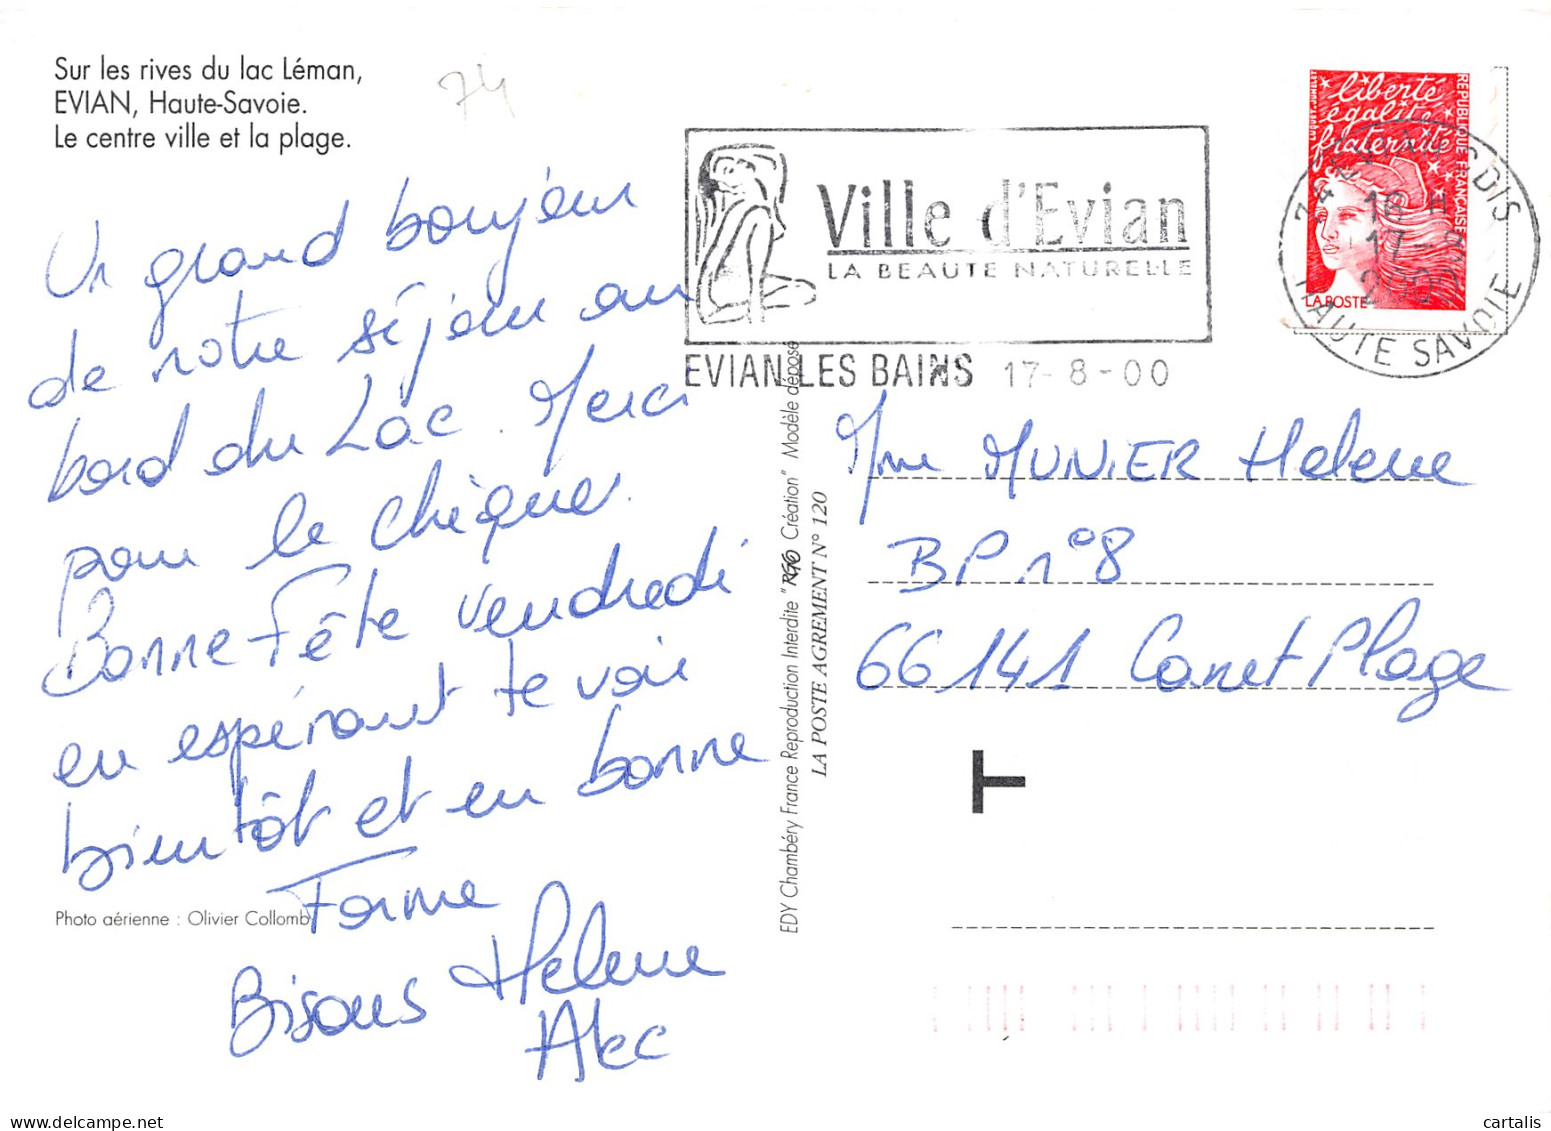 Sur les rives du lac Léman,
EVIAN, Haute-Savoie.
Le centre ville et la plage.
74
Un grand bonjour
de notre séjour au
bord du Lac. Merci
pour le chèque.
Bonne Fête vendredi
en espérant te voir
bientôt et en bonne
Forme
Bisous Helene
Alec
Photo aérienne : Olivier Collomb
Ville d'Evian
LA BEAUTE NATURELLE
EVIAN LES BAINS 17-8-00
liberté
égalité
fraternité
REPUBLIQUE FRANÇAISE
LUQUET & JUMELET
LA POSTE
16 H
17-8
2000
HAUTE SAVOIE
EDY Chambéry France Reproduction Interdite "RGO Création" Modèle déposé
LA POSTE AGREMENT N° 120
Mme MUNIER Helene
BP n°8
66141 Canet Plage
T
cartalis
delcampe.net